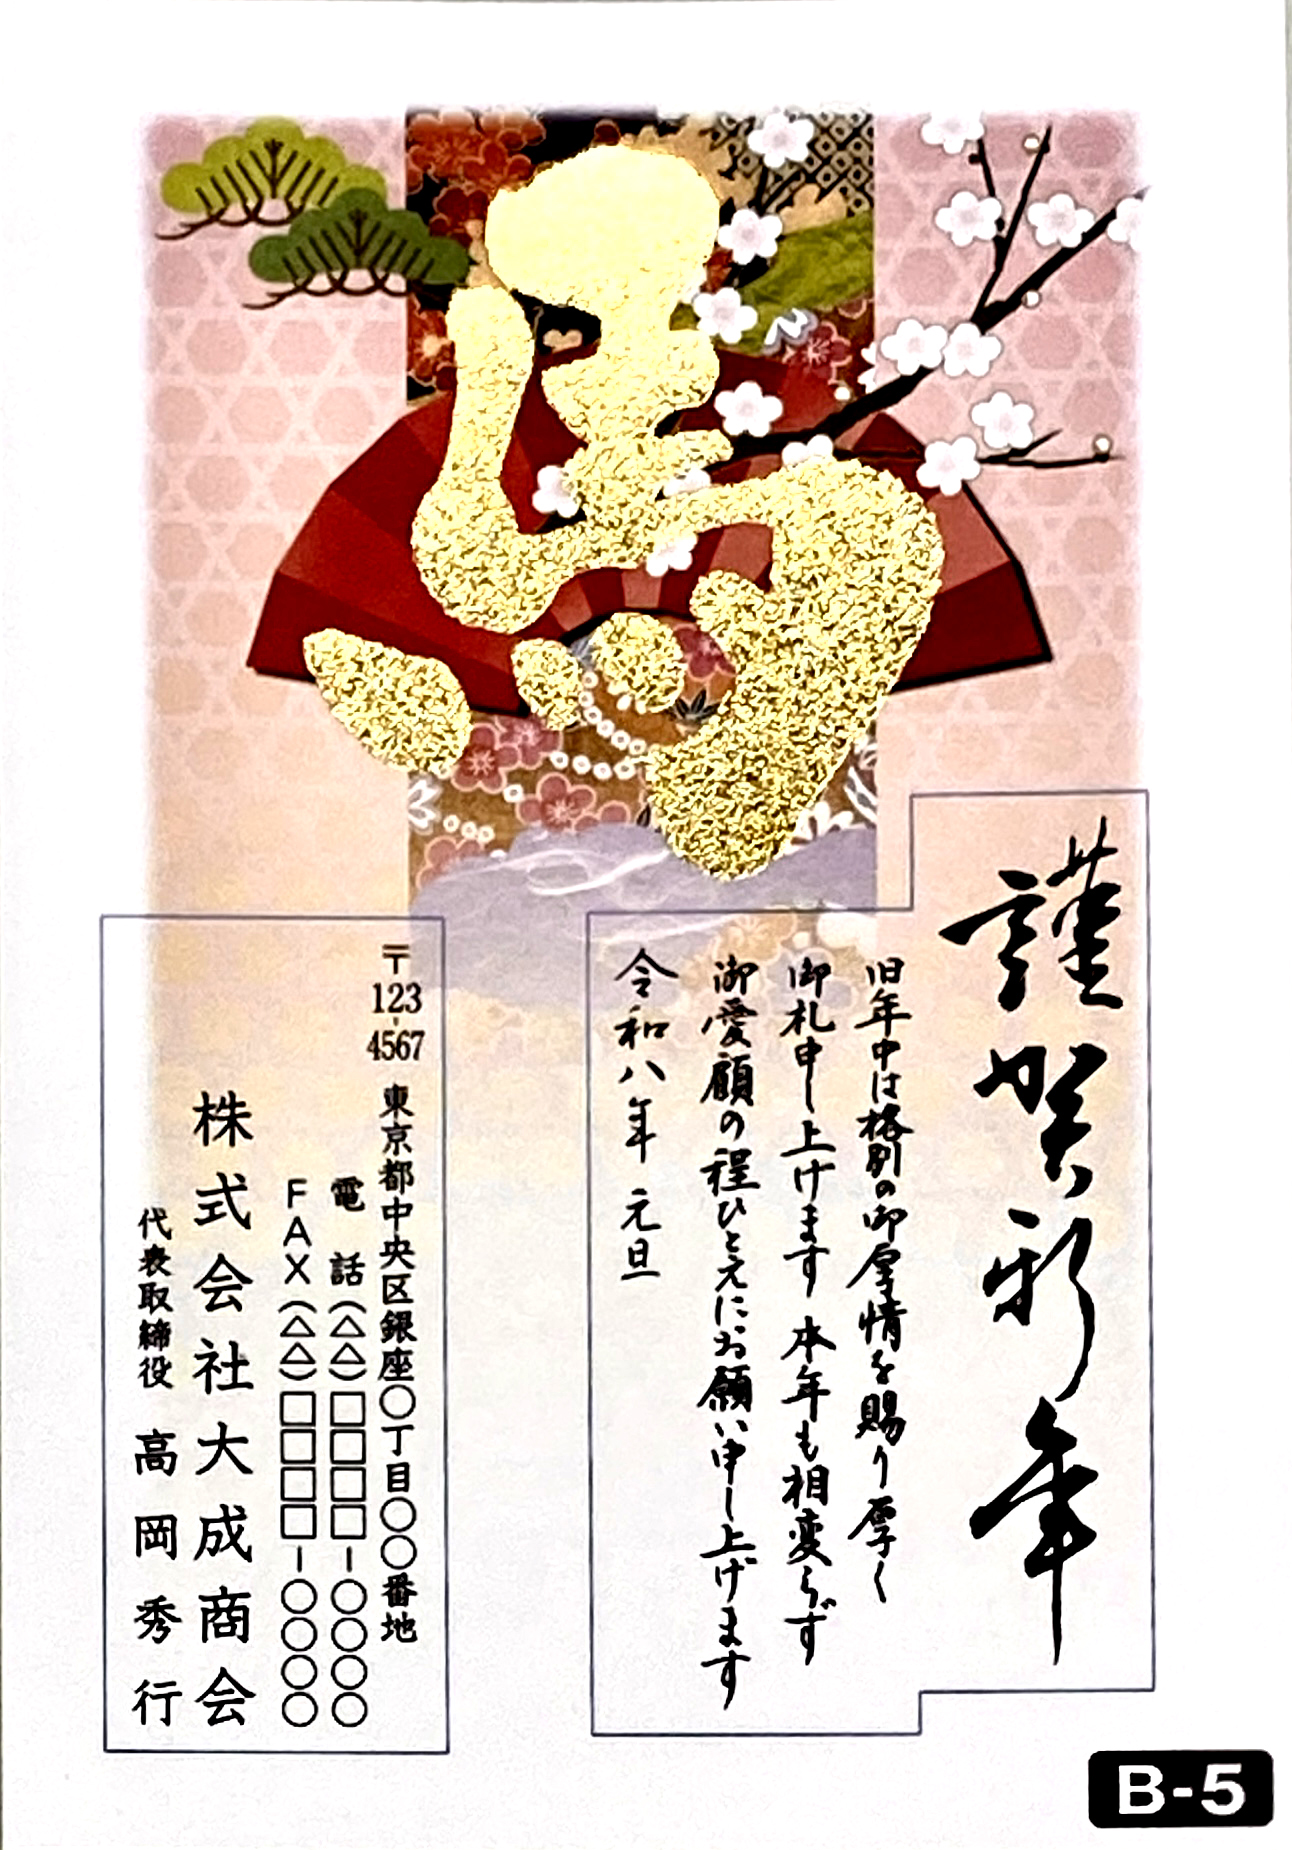 馬
謹賀新年
旧年中は格別の御厚情を賜り厚く
御礼申し上げます 本年も相変らず
御愛顧の程ひとえにお願い申し上げます
令和八年 元旦
〒123-4567 東京都中央区銀座〇丁目〇〇番地
電話(△△)□□□□-〇〇〇〇
FAX(△△)□□□□-〇〇〇〇
株式会社大成商会
代表取締役 高岡秀行
B-5